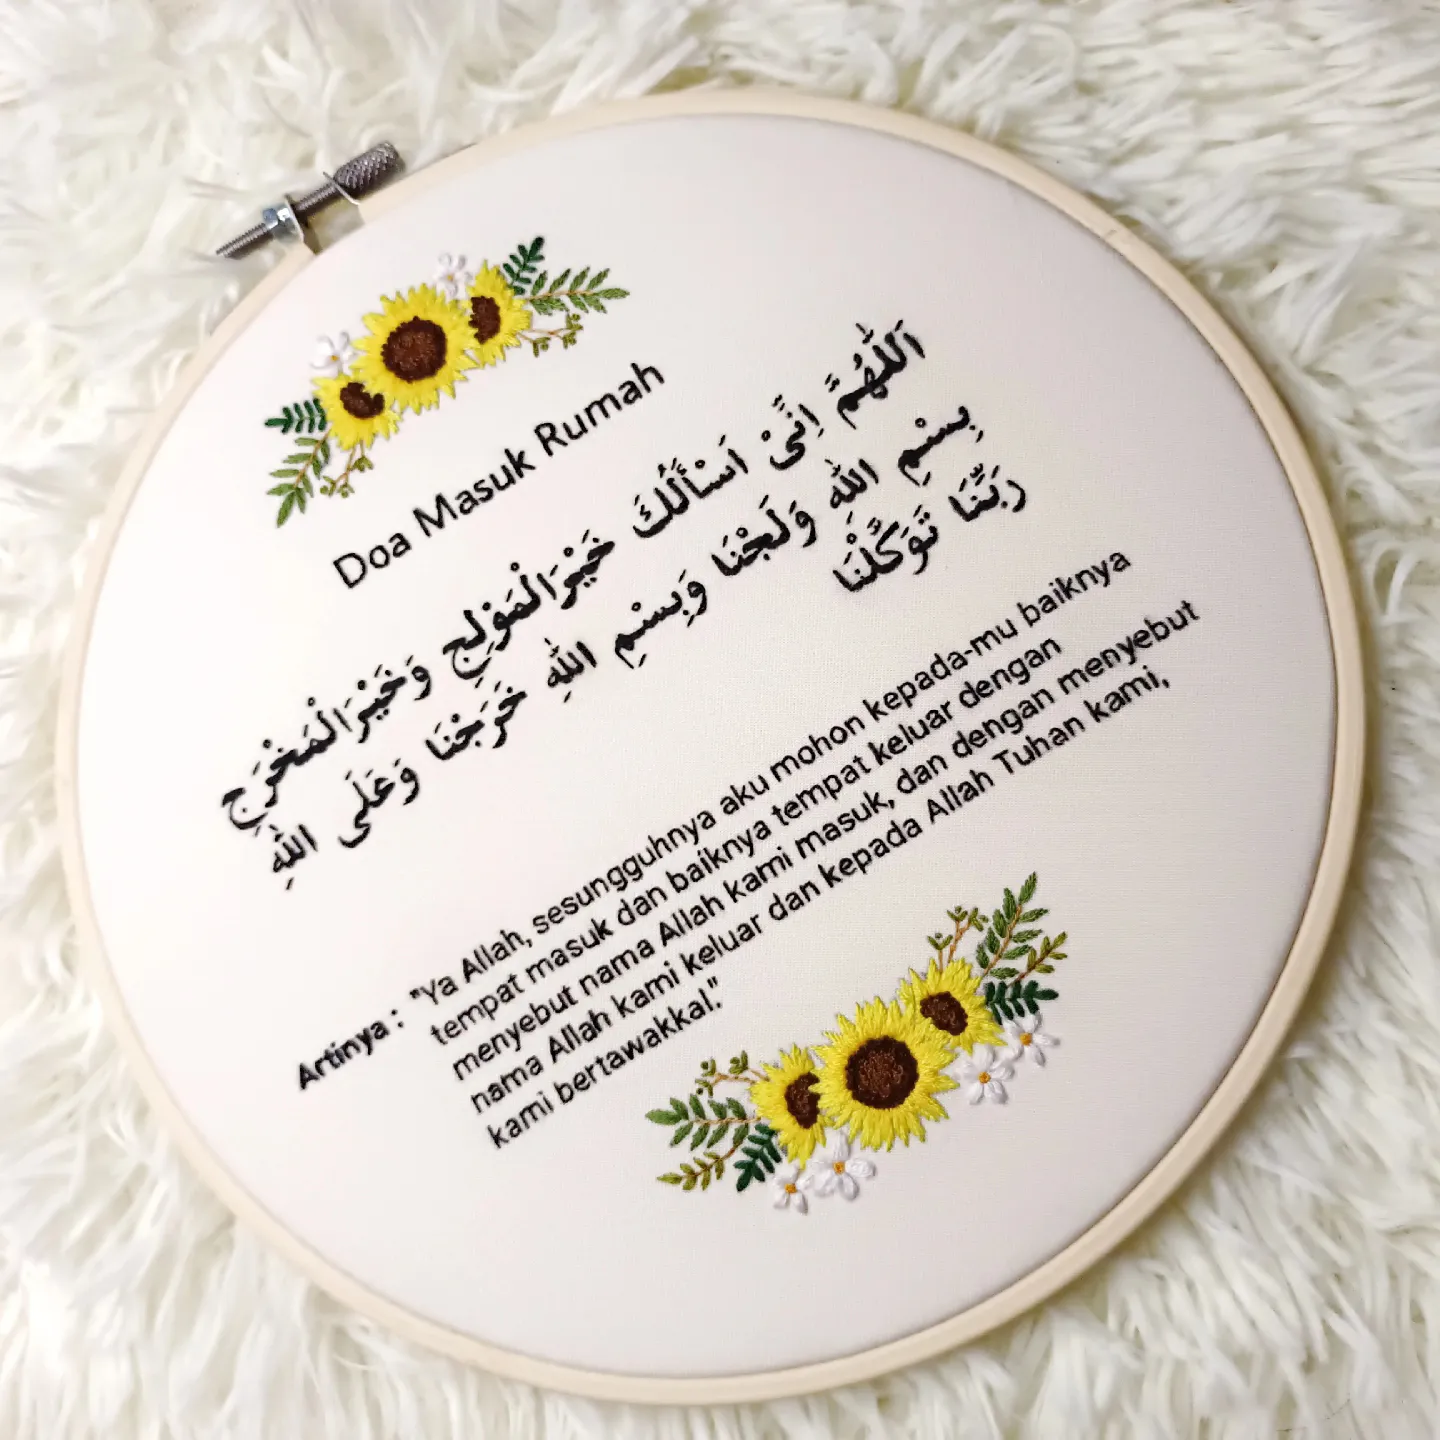 Doa Masuk Rumah
اَللّٰهُمَّ اِنِّىْ اَسْأَلُكَ خَيْرَالْمَوْلِجِ وَخَيْرَالْمَخْرَجِ
بِسْمِ اللهِ وَلَجْنَا وَبِسْمِ اللهِ خَرَجْنَا وَعَلَى اللهِ
رَبِّنَا تَوَكَّلْنَا
Artinya : "Ya Allah, sesungguhnya aku mohon kepada-mu baiknya
tempat masuk dan baiknya tempat keluar dengan
menyebut nama Allah kami masuk, dan dengan menyebut
nama Allah kami keluar dan kepada Allah Tuhan kami,
kami bertawakkal."